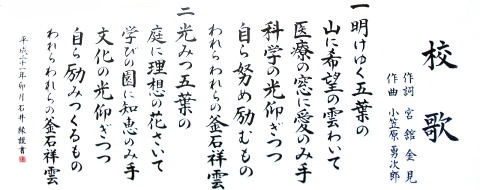 校歌
作詞 宮舘金見
作曲 小笠原勇次郎
一 明けゆく五葉の
山に希望の雲わいて
医療の窓に愛のみ手
科学の光仰ぎつつ
自ら努め励むもの
われらわれらの釜石祥雲
二 光みつ五葉の
庭に理想の花さいて
学びの園に知恵のみ手
文化の光仰ぎつつ
自ら励みつくるもの
われらわれらの釜石祥雲
平成二十一年卯月石井 謹書